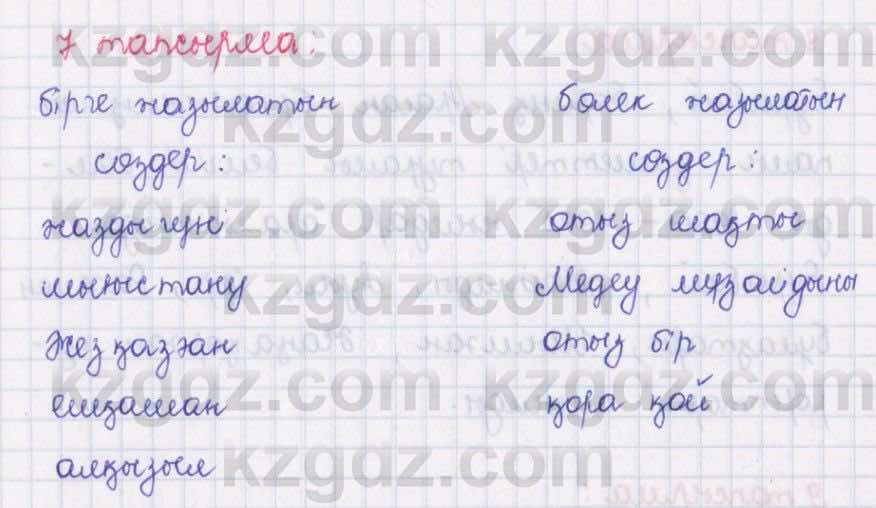 7 тапсырма:
бірге жазылатын
сөздер:
жаздыгүні
шығыстану
Жезқазған
ешқашан
алқызыл
бөлек жазылатын
сөздер:
отыз шақты
Медеу мұзайдыны
отыз бір
қара қой
kzgdz.com